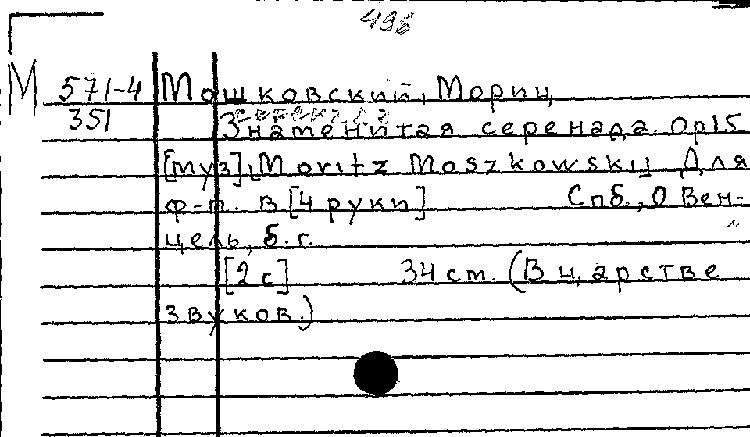 496
М 571-4 Мошковский, Мориц
351 Знаменитая серенада. Op15
[муз], Moritz Moszkowskij Для
ф-п. в [4 руки] Спб., О Вен-
цель, б. г.
[2 с] 34 см. (В царстве
звуков.)